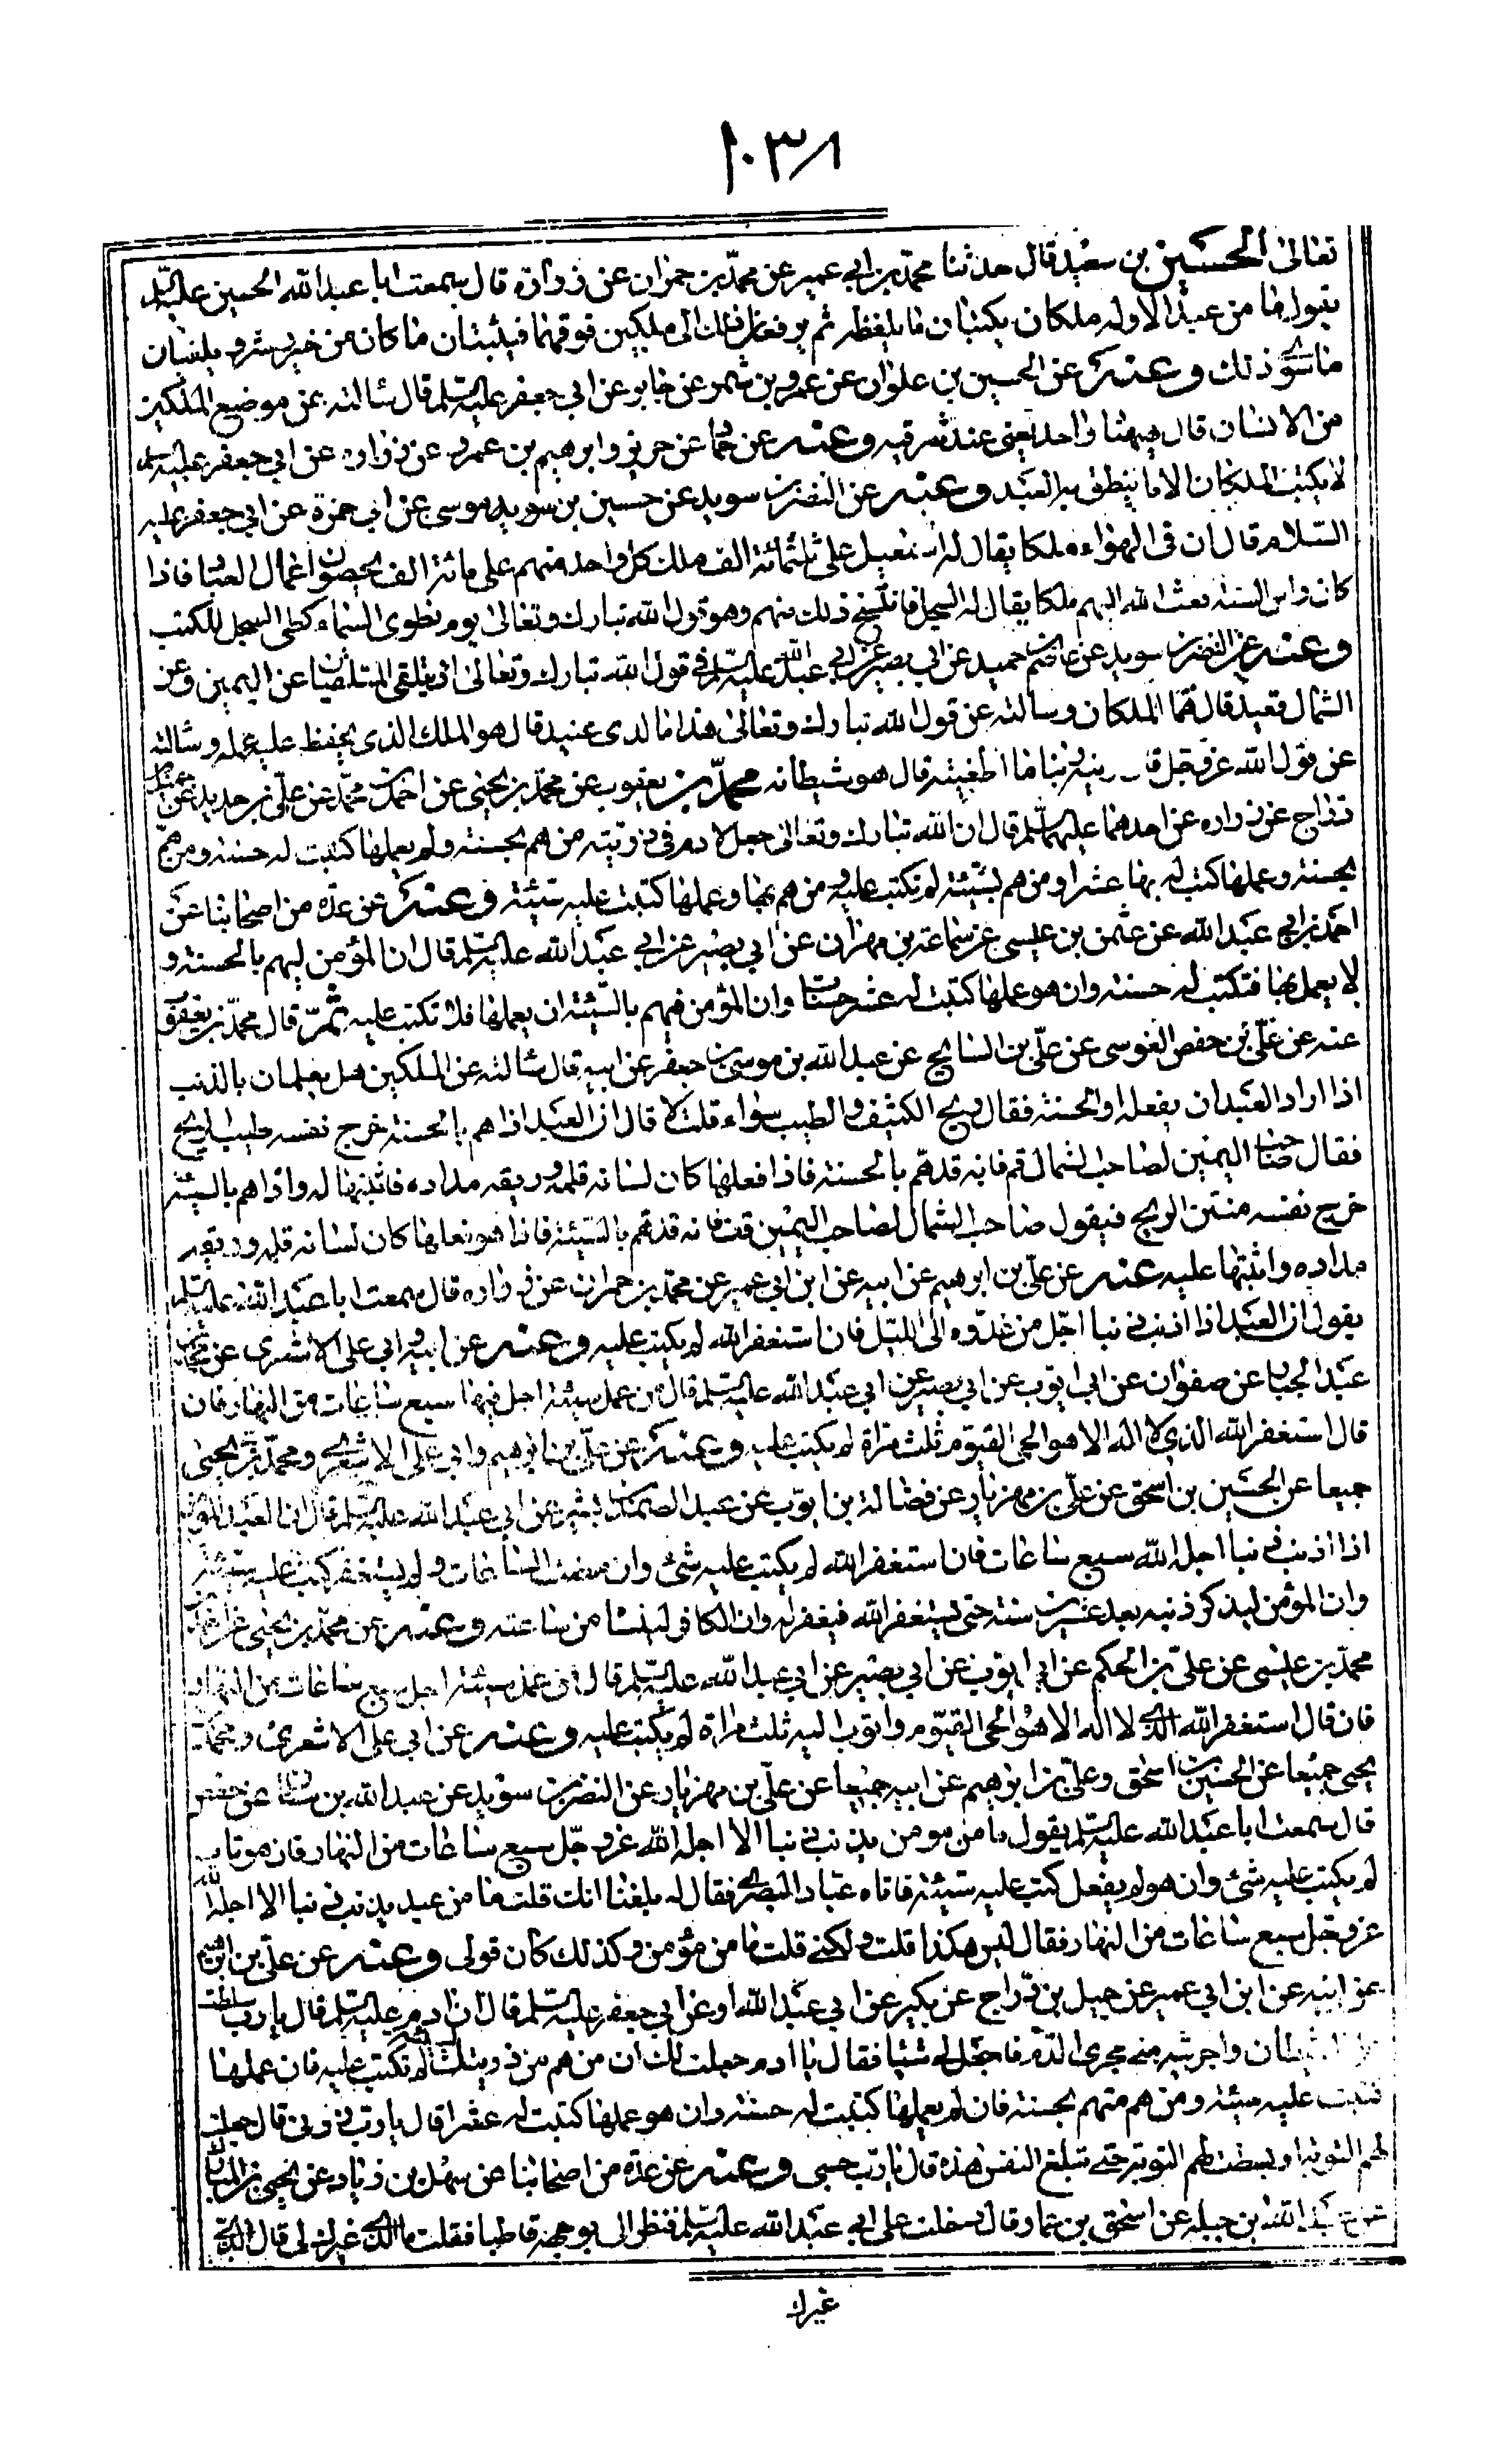 ١٠٣٨
تعالى الحسين بن سعيد قال حدثنا محمد بن ابي عمير عن محمد بن حمران عن زرارة قال سمعت ابا عبد الله الحسين عليه السلم
يقول ما من عبد الا وله ملكان يكتبان ما يلفظه ثم يرفعان ذلك الى ملكين فوقهما فيثبتان ما كان من خير وشر ويلقيان
ما سوى ذلك وعنه عن الحسين بن علوان عن عمرو بن شمر عن جابر عن ابي جعفر عليه السلم قال سئالته عن موضع الملكين
من الانسان قال هيهنا واحد يعني عند شدقيه وعنه عن حماد عن حريز وابرهيم بن عمر عن زرارة عن ابي جعفر عليه السلم
لا يكتب الملكان الا ما ينطق به العبد وعنه عن النضر بن سويد عن حسين بن موسى عن ابي حمزة عن ابي جعفر عليه
السلام قال ان في الهواء ملكا يقال له اسمعيل على ثلثمائة الف ملك كل واحد منهم على مائة الف يحصون اعمال العباد فاذا
كان راس السنة بعث الله اليهم ملكا يقال له السجل فانتسخ ذلك منهم وهو قول الله تبارك وتعالى يوم نطوى السماء كطي السجل للكتب
وعنه عن النضر بن سويد عن عاصم بن حميد عن ابي بصير عن ابي عبد الله عليه السلم في قول الله تبارك وتعالى اذ يتلقى المتلقيان عن اليمين وعن
الشمال قعيد قال هما الملكان وسالته عن قول الله تبارك وتعالى هذا ما لدى عتيد قال هو الملك الذي يحفظ عليه عمله وسالته
عن قول الله عز وجل قال قرينه ربنا ما اطغيته قال هو شيطانه محمد بن يعقوب عن محمد بن يحيى عن احمد بن محمد عن علي بن حديد عن جميل بن
دراج عن زرارة عن احدهما عليهما السلم قال ان الله تبارك وتعالى جعل لادم في ذريته من هم بحسنة ولم يعملها كتبت له حسنة ومن هم
بحسنة وعملها كتبت له بها عشرا ومن هم بسيئة لم تكتب عليه ومن هم بها وعملها كتبت عليه سيئة وعنه عن عدة من اصحابنا عن
احمد بن ابي عبد الله عن عثمن بن عيسى عن سماعة بن مهران عن ابي بصير عن ابي عبد الله عليه السلم قال ان المؤمن ليهم بالحسنة و
لا يعمل بها فتكتب له حسنة وان هو عملها كتبت له عشر حسنات وان المؤمن ليهم بالسيئة ان يعملها فلا تكتب عليه ثم قال محمد بن يعقوب
عنه عن علي بن حفص العوسى عن علي بن السايح عن عبد الله بن موسى بن جعفر عن ابيه قال سئالته عن الملكين هل يعلمان بالذنب
اذا اراد العبد ان يفعله او الحسنة فقال ريح الكنيف والطيب سواء قلت لا قال ان العبد اذا هم بالحسنة خرج نفسه طيب الريح
فقال صاحب اليمين لصاحب الشمال قم فانه قد هم بالحسنة فاذا فعلها كان لسانه قلمه وريقه مداده فاثبتها له واذا هم بالسيئة
خرج نفسه منتن الريح فيقول صاحب الشمال لصاحب اليمين قف فانه قد هم بالسيئة فاذا هو فعلها كان لسانه قلمه وريقه
مداده واثبتها عليه عنه عن علي بن ابرهيم عن ابيه عن ابن ابي عمير عن محمد بن حمران عن زرارة قال سمعت ابا عبد الله عليه السلم
يقول ان العبد اذا اذنب ذنبا اجل من غدوة الى الليل فان استغفر الله لم يكتب عليه وعنه عن ابيه وابي علي الاشعري عن محمد بن
عبد الجبار عن صفوان عن ابي ايوب عن ابي بصير عن ابي عبد الله عليه السلم قال من عمل سيئة اجل فيها سبع ساعات من النهار فان
قال استغفر الله الذي لا اله الا هو الحي القيوم ثلث مرات لم يكتب عليه وعنه عن علي بن ابرهيم وابي علي الاشعري ومحمد بن يحيى
جميعا عن الحسين بن اسحق عن علي بن مهزيار عن فضالة بن ايوب عن عبد الصمد بن بشير عن ابي عبد الله عليه السلم قال ان العبد المؤمن
اذا اذنب ذنبا اجله الله سبع ساعات فان استغفر الله لم يكتب عليه شئ وان مضت الساعات ولم يستغفر كتبت عليه سيئة
وان المؤمن ليذكر ذنبه بعد عشرين سنة حتى يستغفر الله فيغفر له وان الكافر لينسا من ساعته وعنه عن محمد بن يحيى عن احمد بن
محمد بن عيسى عن علي بن الحكم عن ابي ايوب عن ابي بصير عن ابي عبد الله عليه السلم قال من عمل سيئة اجل سبع ساعات من النهار
فان قال استغفر الله الذي لا اله الا هو الحي القيوم واتوب اليه ثلث مرات لم يكتب عليه وعنه عن ابي علي الاشعري ومحمد بن
يحيى جميعا عن الحسين بن اسحق وعلي بن ابرهيم عن ابيه جميعا عن علي بن مهزيار عن النضر بن سويد عن عبد الله بن سنان عن حفص
قال سمعت ابا عبد الله عليه السلم يقول ما من مومن يذنب ذنبا الا اجله الله عز وجل سبع ساعات من النهار فان هو تاب
لم يكتب عليه شئ وان هو لم يفعل كتب عليه سيئة فاتاه عباد البصري فقال له بلغنا انك قلت ما من عبد يذنب ذنبا الا اجله الله
عز وجل سبع ساعات من النهار فقال ليس هكذا قلت ولكني قلت ما من مؤمن وكذلك كان قولى وعنه عن علي بن ابرهيم
عن ابيه عن ابن ابي عمير عن جميل بن دراج عن بكير عن ابي عبد الله او عن ابي جعفر عليه السلم قال ان ادم عليه السلم قال يا رب سلطت
على الشيطان واجريته منى مجرى الدم فاجعل لي شيئا فقال يا ادم جعلت لك ان من هم من ذريتك بسيئة لم تكتب عليه فان عملها
كتبت عليه سيئة ومن هم منهم بحسنة فان لم يعملها كتبت له حسنة وان هو عملها كتبت له عشرا قال يا رب زدنى قال جعلت
لهم التوبة او بسطت لهم التوبة حتى تبلغ النفس هذه قال يا رب حسبى وعنه عن عدة من اصحابنا عن سهل بن زياد عن يحيى بن المبارك
عن عبد الله بن جبلة عن اسحق بن عمار قال دخلت على ابي عبد الله عليه السلم فنظر الى بوجه قاطب فقلت ما الذي غيرك لى قال الذي
غيرك